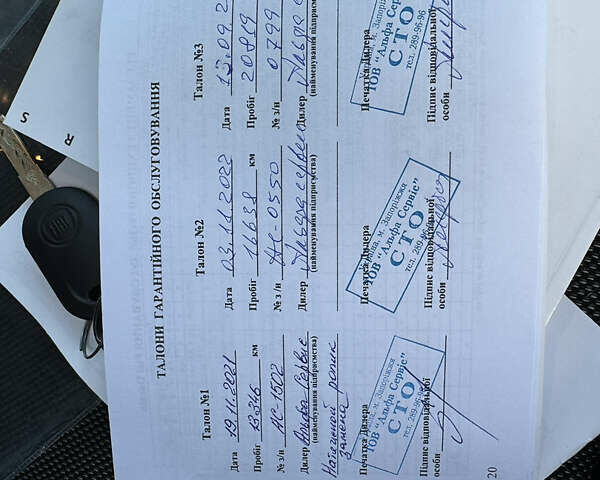 ТАЛОНИ ГАРАНТІЙНОГО ОБСЛУГОВУВАННЯ
Талон №1
Дата 19.11.2021
Пробіг 13346 км
№ з/н АС-1502
Дилер Альфа Сервис
(найменування підприємства)
Натяжной ролик
замена
Печатка Дилера
м. Запоріжжя
ТОВ "Альфа Сервіс"
СТО
тел. 289-96-96
Підпис відповідальної
особи
20
Талон №2
Дата 03.11.2022
Пробіг 16638 км
№ з/н АС-0550
Дилер
(найменування підприємства)
Печатка Дилера
Україна, м. Запоріжжя
ТОВ "Альфа Сервіс"
СТО
тел. 289-96
Підпис відповідальної
особи
Талон №3
Дата 13.09.2
Пробіг 20819
№ з/н 0799
Дилер
(найменування підприємства)
Печатка Дилера
м. Запоріж
ТОВ "Альфа Серв
СТО
тел. 289-96-96
Підпис відповідальної
особи
R
S